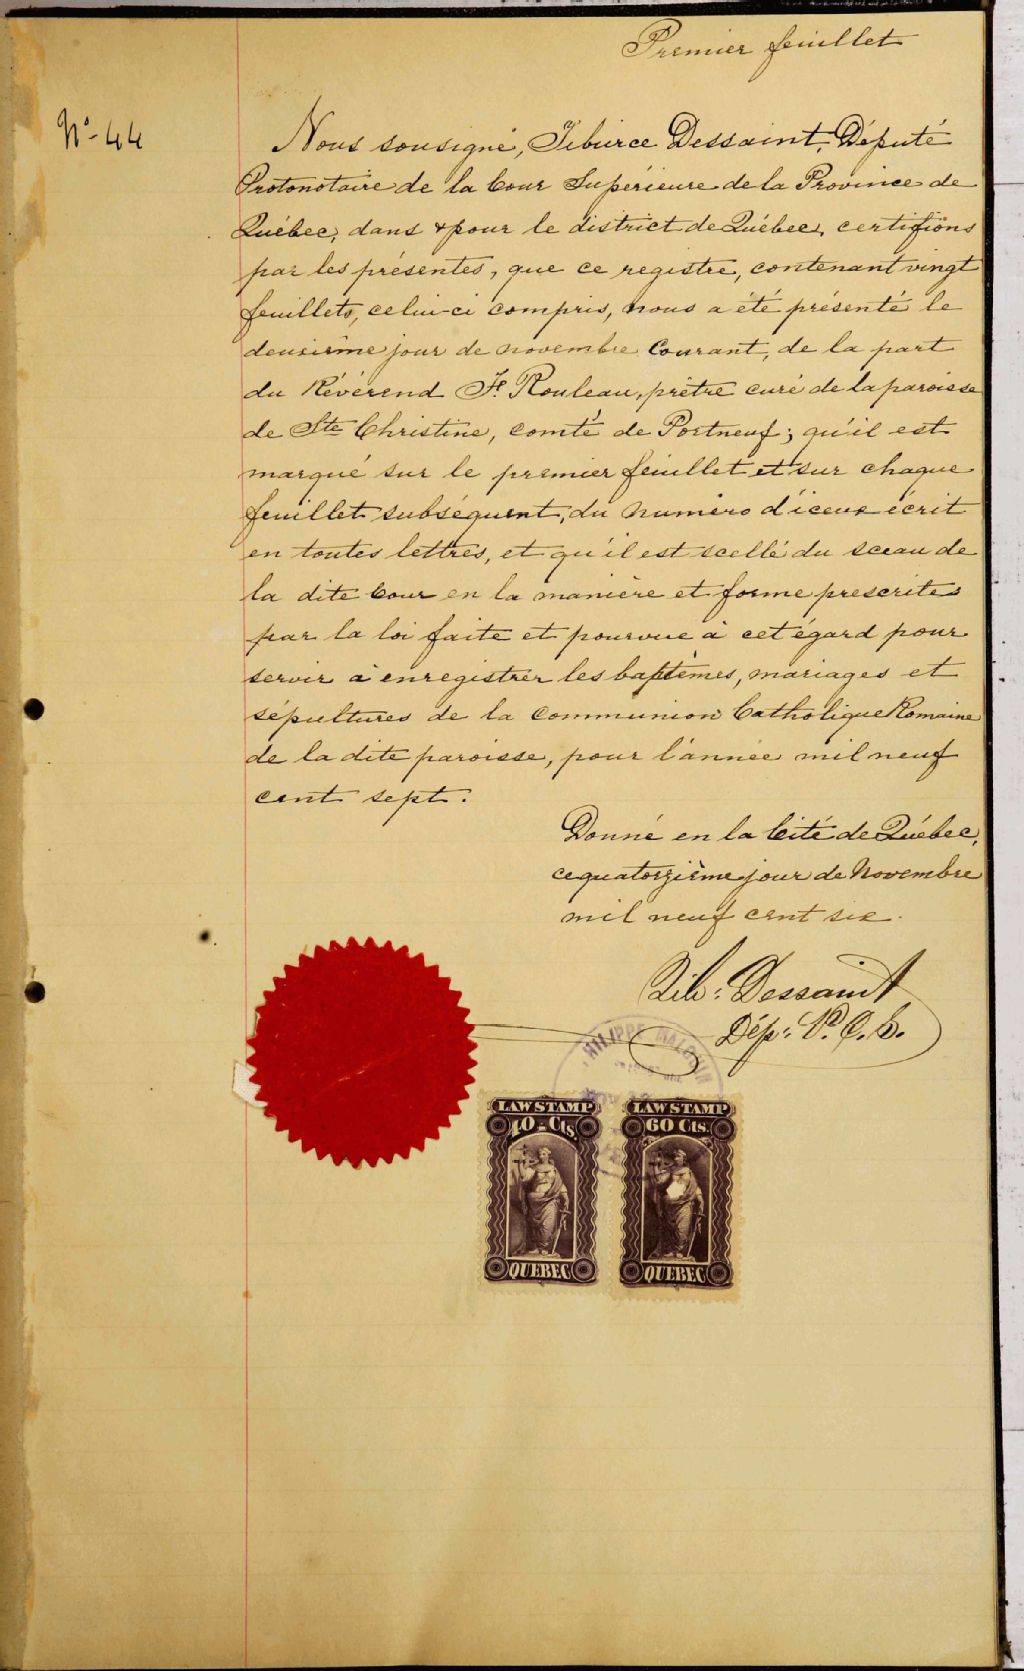 Premier feuillet
No. 44
Nous sousigné, Tiburce Dessaint, Député
Protonotaire de la Cour Supérieure de la Province de
Québec, dans & pour le district de Québec, certifions
par les présentes, que ce registre, contenant vingt
feuillets, celui-ci compris, nous a été présenté le
deuxième jour de novembre Courant, de la part
du Révérend Ft Rouleau, prêtre curé de la paroisse
de Ste Christine, comté de Portneuf; qu'il est
marqué sur le premier feuillet et sur chaque
feuillet subséquent, du numéro d'iceux écrit
en toutes lettres, et qu'il est scellé du sceau de
la dite Cour en la manière et forme prescrites
par la loi faite et pourvue à cet égard pour
servir à enregistrer les baptêmes, mariages et
sépultures de la Communion Catholique Romaine
de la dite paroisse, pour l'année mil neuf
cent sept.
Donné en la Cité de Québec,
ce quatorzième jour de Novembre
mil neuf cent six.
Tib: Dessaint
Dép: P. C. S.
PHILIPPE MALOUIN
LAW STAMP
40 - Cts.
QUEBEC
LAW STAMP
60 Cts.
QUEBEC